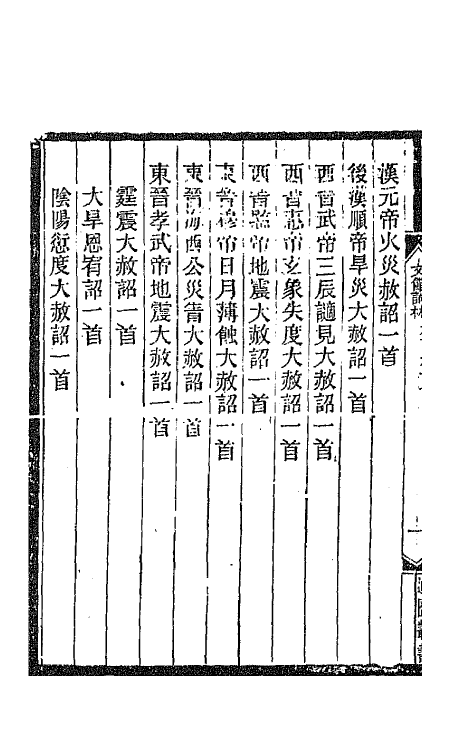 漢元帝火災赦詔一首
後漢順帝旱災大赦詔一首
西晉武帝三辰謫見大赦詔一首
西晉惠帝玄象失度大赦詔一首
西晉愍帝地震大赦詔一首
東晉穆帝日月薄蝕大赦詔一首
東晉海西公災眚大赦詔一首
東晉孝武帝地震大赦詔一首
霆震大赦詔一首
大旱恩宥詔一首
陰陽愆度大赦詔一首